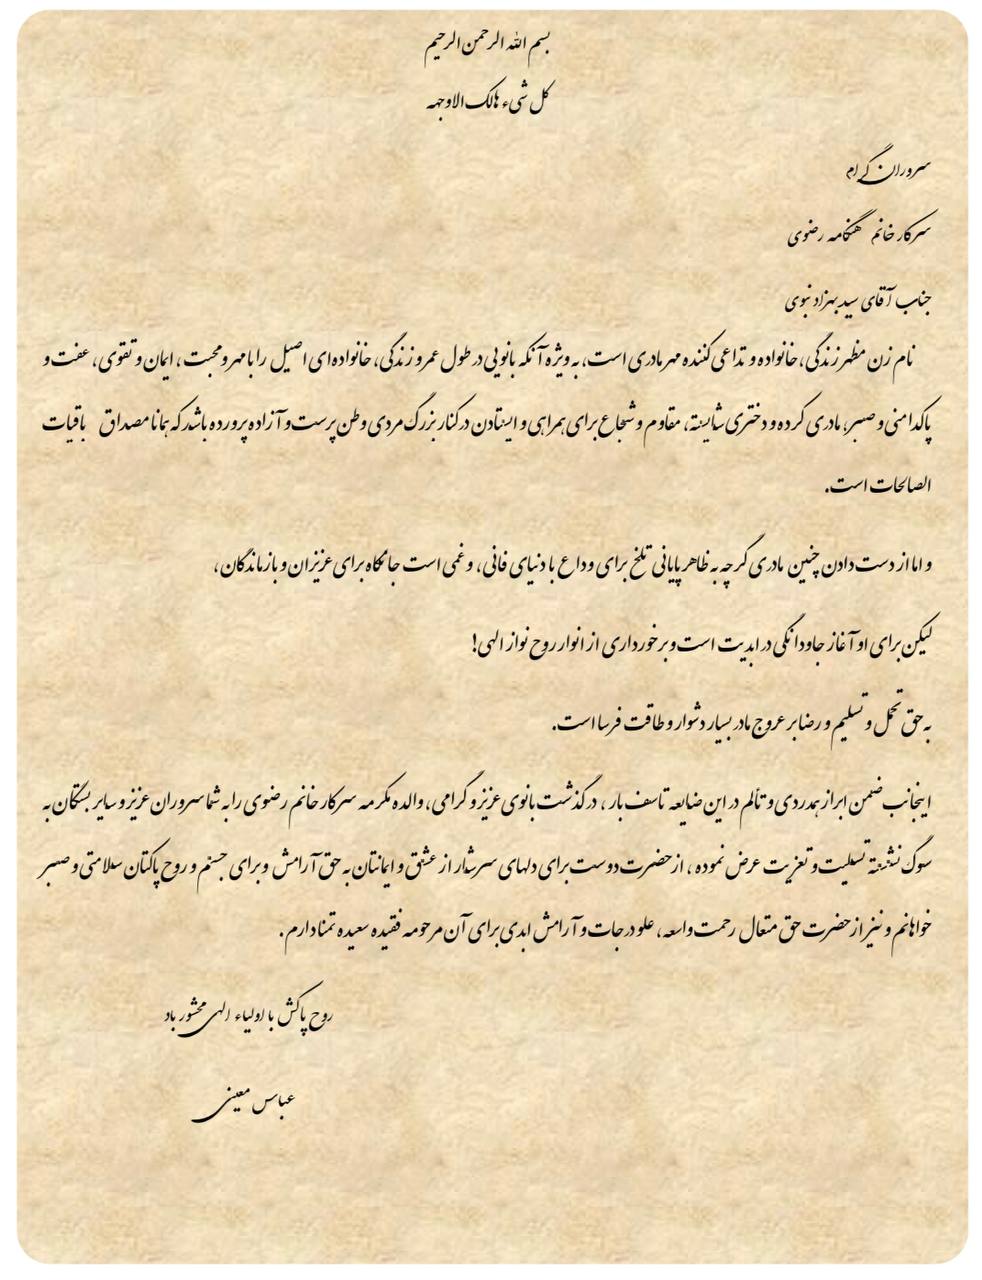 بسم الله الرحمن الرحیم
کل شیء هالک الا وجهه
سروران گرام
سرکار خانم هنگامه رضوی
جناب آقای سید بهزاد نبوی
نام زن مظهر زندگی، خانواده و تداعی کننده مهر مادری است، به ویژه آنکه بانویی در طول عمر و زندگی، خانواده‌ای اصیل را با مهر و محبت، ایمان و تقوی، عفت و
پاکدامنی و صبر، مادری کرده و دختری شایسته، مقاوم و شجاع برای همراهی و ایستادن در کنار بزرگ مردی وطن پرست و آزاده پرورده باشد که همانا مصداق باقیات
الصالحات است.
و اما از دست دادن چنین مادری گرچه به ظاهر پایانی تلخ برای وداع با دنیای فانی، و غمی است جانکاه برای عزیزان و بازماندگان،
لیکن برای او آغاز جاودانگی در ابدیت است و برخورداری از انوار روح نواز الهی!
به حق تحمل و تسلیم و رضا بر عروج مادر بسیار دشوار و طاقت فرسا است.
اینجانب ضمن ابراز همدردی و تألم در این ضایعه تاسف بار، درگذشت بانوی عزیز و گرامی، والده مکرمه سرکار خانم رضوی را به شما سروران عزیز و سایر بستگان به
سوگ نشسته تسلیت و تعزیت عرض نموده، از حضرت دوست برای دلهای سرشار از عشق و ایمانتان به حق آرامش و برای جسم و روح پاکتان سلامتی و صبر
خواهانم و نیز از حضرت حق متعال رحمت واسعه، علو درجات و آرامش ابدی برای آن مرحومه فقیده سعیده تمنا دارم.
روح پاکش با اولیاء الهی محشور باد
عباس معینی